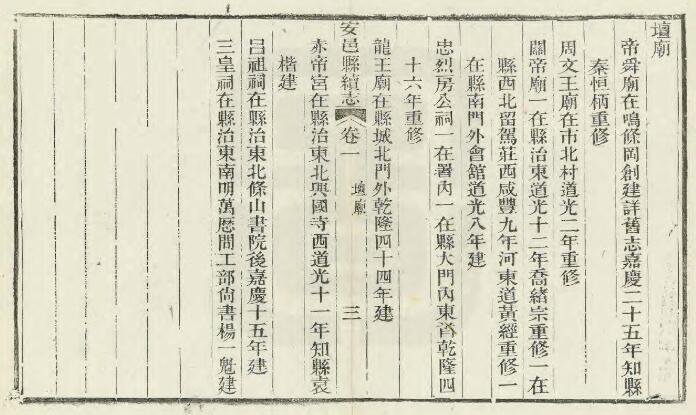 壇廟
帝舜廟在鳴條岡創建詳舊志嘉慶二十五年知縣
秦恒柄重修
周文王廟在市北村道光二年重修
關帝廟一在縣治東道光十二年喬緒宗重修一在
縣西北留駕莊西咸豐九年河東道黃經重修一
在縣南門外會館道光八年建
忠烈房公祠一在署內一在縣大門內東首乾隆四
十六年重修
龍王廟在縣城北門外乾隆四十四年建
安邑縣續志 卷一 壇廟 三
赤帝宮在縣治東北興國寺西道光十一年知縣袁
楷建
呂祖祠在縣治東北條山書院後嘉慶十五年建
三皇祠在縣治東南明萬厯間工部尚書楊一魁建